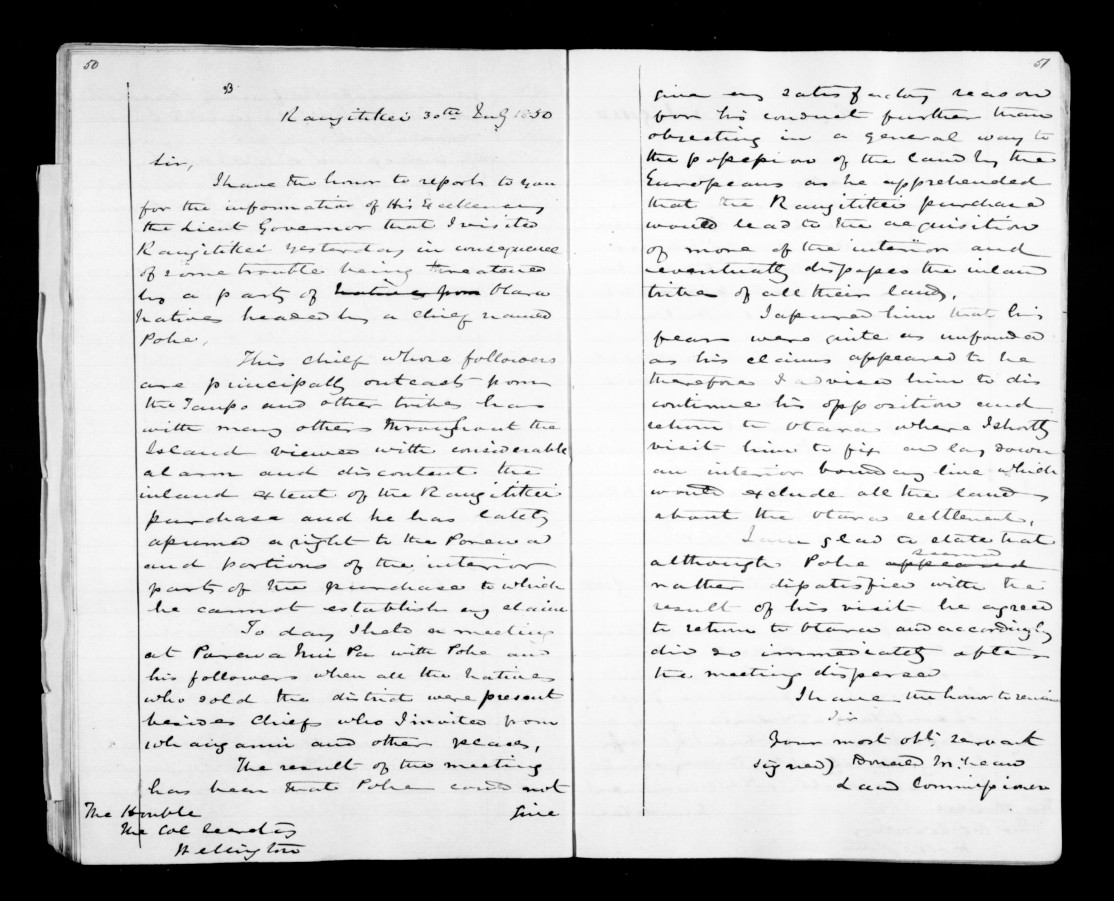 50
B
Rangitikei 30th July 1850
Sir,
I have the honor to report to you
for the information of His Excellency
the Lieut Governor that I visited
Rangitikei yesterday in consequence
of some trouble being threatened
by a party of Natives from Otara
Natives headed by a chief named
Pohe,
This chief whose followers
are principally outcasts from
the Taupo and other tribes has
with many others throughout the
Island viewed with considerable
alarm and discontent the
inland extent of the Rangitikei
purchase and he has lately
assumed a right to the Porewa
and portions of the interior
parts of the purchase to which
he cannot establish any claim
To day I held a meeting
at Parewa Nui Pa with Pohe and
his followers when all the Natives
who sold the district were present
besides Chiefs who I invited from
Whanganui and other places,
The result of the meeting
has been that Pohe could not
give
The Honble
The Col Secretary
Wellington
51
give any satisfactory reason
for his conduct further than
objecting in a general way to
the possession of the land by the
Europeans as he apprehended
that the Rangitikei purchase
would lead to the acquisition
of more of the interior and
eventually dispossess the inland
tribes of all their lands,
I assured him that his
fears were quite as unfounded
as his claims appeared to be
therefore I advised him to dis
continue his opposition and
return to Otara where I shortly
visit him to fix and lay down
an interior boundary line which
would exclude all the lands
about the Otara settlement,
I am glad to state that
although Pohe appeared seemed
rather dissatisfied with the
result of his visit he agreed
to return to Otara and accordingly
did so immediately after
the meeting dispersed
I have the honor to remain
Sir
Your most obt. servant
signed) Donald McLean
Land Commissioner